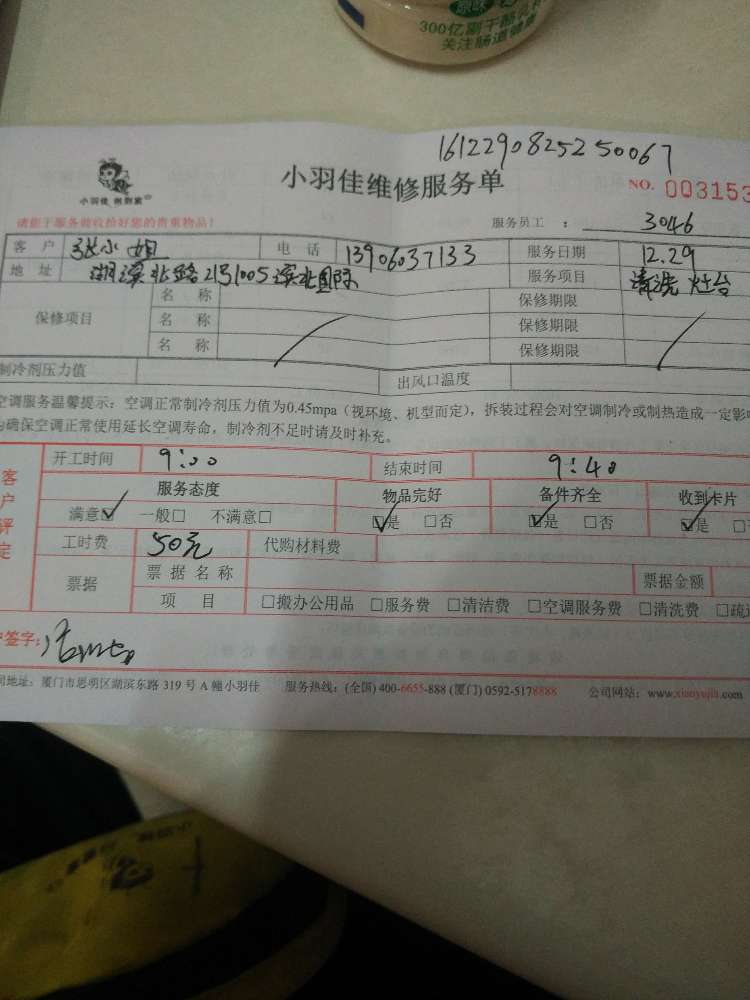 300亿副干酪乳杆
关注肠道健康
1612290825250067
小羽佳维修服务单
NO. 003153
小羽佳 搬到家
请您于服务前收拾好您的贵重物品!
服务员工 : 3046
客户 张小姐 电话 13906037133 服务日期 12.29
地址 湖滨北路21号1005滨北国际 服务项目 清洗灶台
保修项目 名称 保修期限
名称 保修期限
名称 保修期限
制冷剂压力值 出风口温度
空调服务温馨提示:空调正常制冷剂压力值为0.45mpa(视环境、机型而定),拆装过程会对空调制冷或制热造成一定影
为确保空调正常使用延长空调寿命,制冷剂不足时请及时补充。
客户评定
开工时间 9:00 结束时间 9:40
服务态度 物品完好 备件齐全 收到卡片
满意☑ 一般□ 不满意□ ☑是 □否 ☑是 □否 ☑是
工时费 50元 代购材料费
票据 票据名称 票据金额
项目 □搬办公用品 □服务费 □清洁费 □空调服务费 □清洗费 □疏
签字:
地址:厦门市思明区湖滨东路 319 号 A 幢小羽佳 服务热线:(全国) 400-6655-888 (厦门) 0592-5178888 公司网站:www.xiaoyujia.com